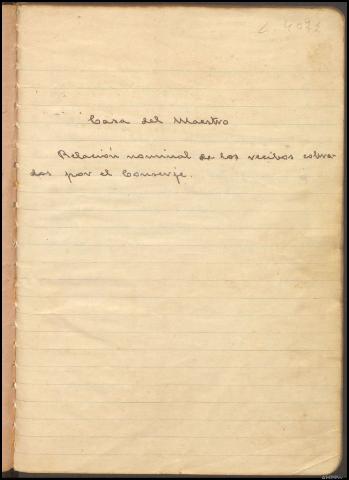 Casa del Maestro
Relación nominal de los recibos cobra-
dos por el Conserje.